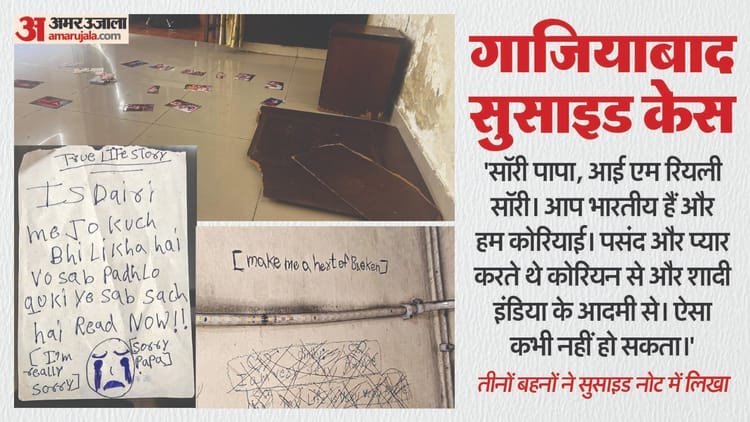 अमर उजाला
amarujala.com
गाजियाबाद
सुसाइड केस
'सॉरी पापा, आई एम रियली
सॉरी। आप भारतीय हैं और
हम कोरियाई। पसंद और प्यार
करते थे कोरियन से और शादी
इंडिया के आदमी से। ऐसा
कभी नहीं हो सकता।'
तीनों बहनों ने सुसाइड नोट में लिखा
True Life Story
Is Dairi
me Jo Kuch
Bhi Likha hai
Vo sab Padh Lo
Quki Ye Sab Sach
hai Read NOW!!
[I'm really sorry]
[sorry Papa]
[make me a hert of Broken]